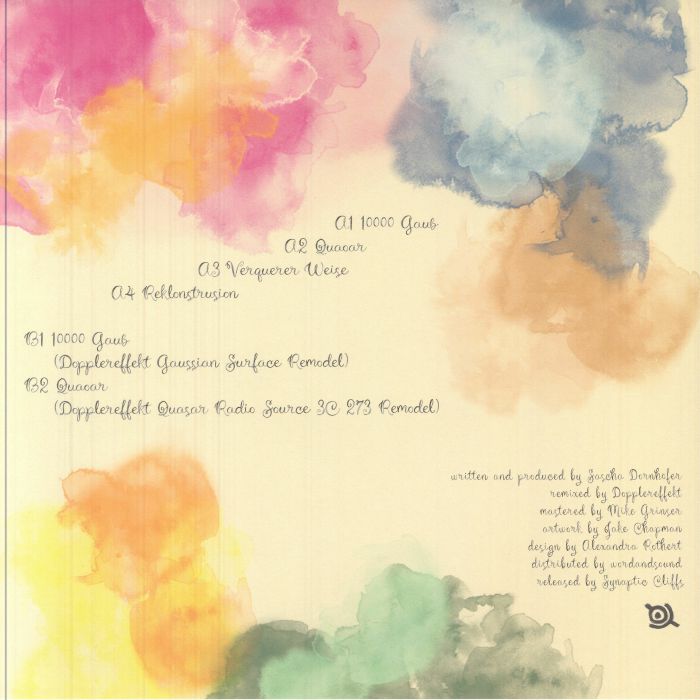 A1 10000 Gaub
A2 Quaoar
A3 Verquerer Weise
A4 Reklonstrusion
B1 10000 Gaub
(Dopplereffekt Gaussian Surface Remodel)
B2 Quaoar
(Dopplereffekt Quasar Radio Source 3C 273 Remodel)
written and produced by Sascha Dornhofer
remixed by Dopplereffekt
mastered by Mike Grinser
artwork by Jake Chapman
design by Alexandra Rothert
distributed by wordandsound
released by Synaptic Cliffs